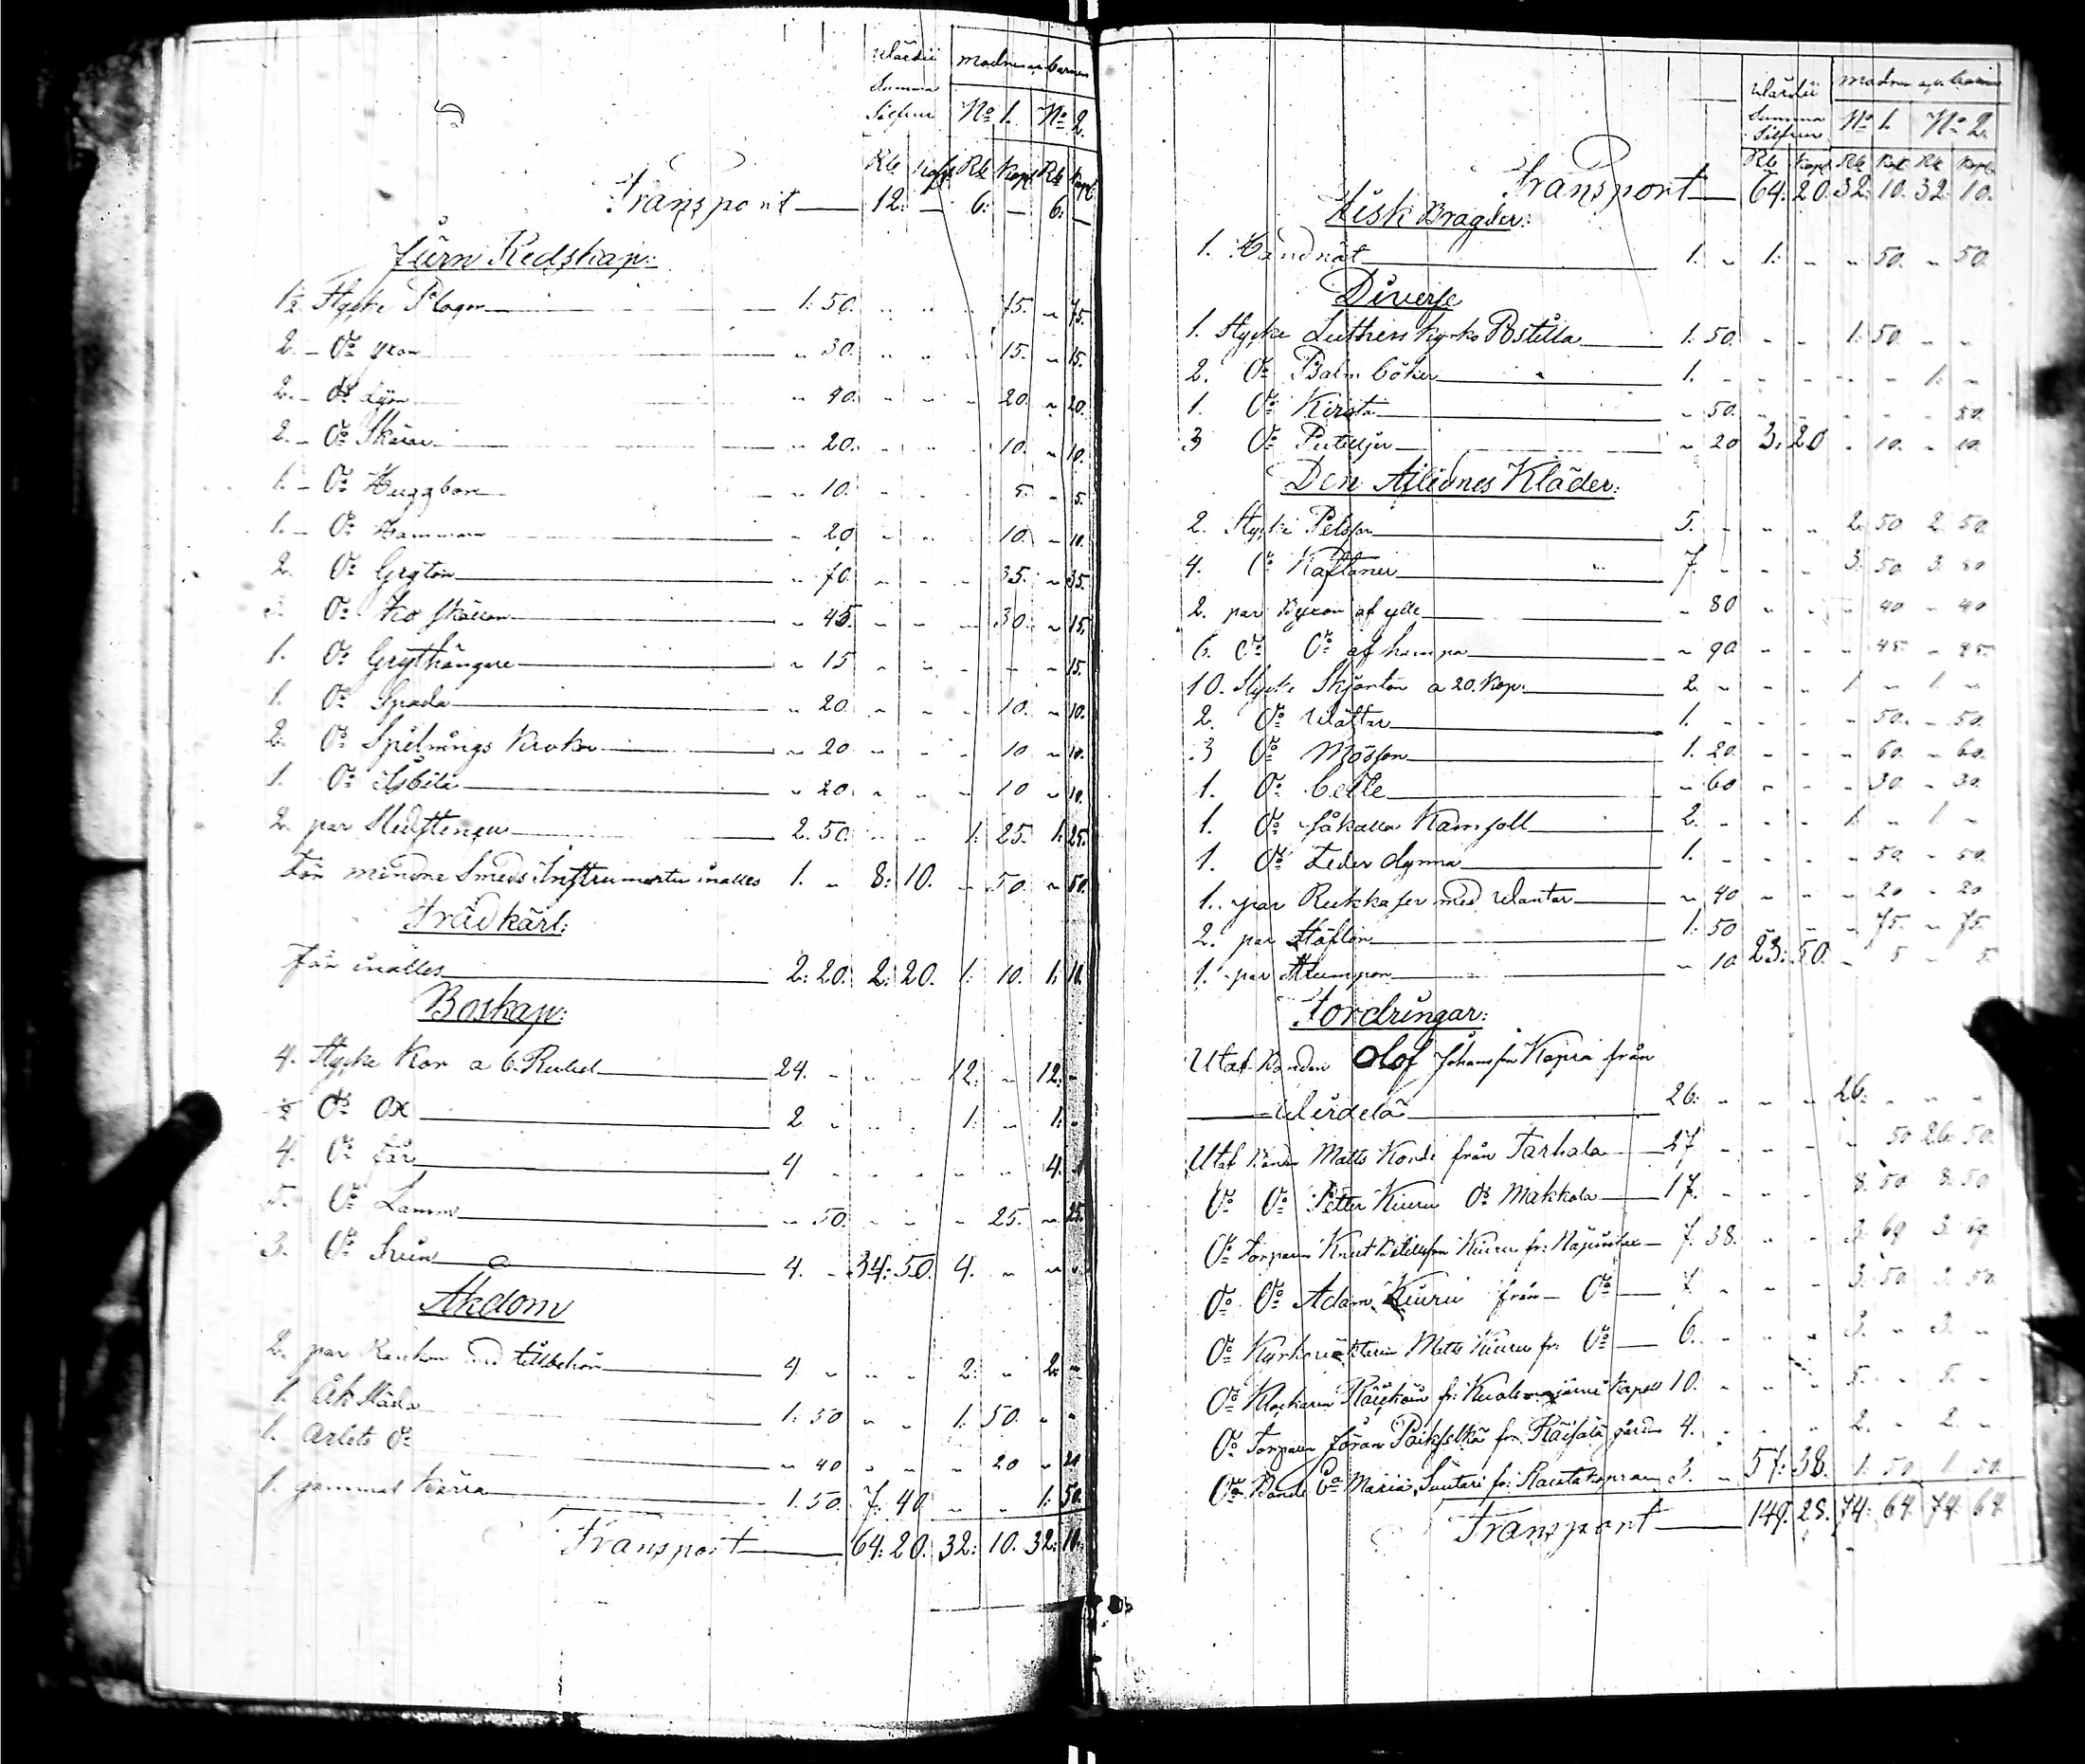 Wärdii Madren barnen
Summa
Silfver No 1. No 2.
Rb Kop Rb Kop Rb Kop
Transport 12: — 6: — 6: —
Järn Redskap:
1½ Stycke Plogar 1: 50. " " " 75. " 75.
2. Do " 30. " " " 15. " 15.
2. Do Lijor " 40. " " " 20. " 20.
2. Do Skäror " 20. " " " 10. " 10.
1. Do Huggbor " 10. " " " 5. " 5.
1. Do Hammare " 20 " " " 10. " 10.
2. Do Grytor " 70. " " " 35. " 35.
3. Do Ko skällor " 45. " " " 30. " 15.
1. Do Grythängare " 15 " " " " " 15.
1. Do Spada " 20. " " " 10. " 10.
2. Do Spilnings Krokar " 20 " " " 10 " 10.
1. Do Isbila " 20. " " " 10 " 10.
2. par Slidstengar 2. 50. " " 1: 25. 1: 25.
För mindre Smeds Instrumenter inalles 1. " 8: 10. " 50. " 50.
Trädkärl:
För inalles 2: 20. 2: 20. 1: 10. 1: 10.
Boskap:
4. Stycke Kor a 6. Rubel 24. " " " 12: " 12: "
½ Do Ox 2 " " " 1: " 1: "
4. Do Får 4 " " " " " 4. "
5. Do Lamm " 50. " " " 25. " 25.
3. Do Svin 4. " 34: 50. 4. " " "
Åkdom
2. par Renkor med tillbehör 4. " " " 2: " 2. "
1. Åk Släda 1: 50 " " 1: 50. " "
1. Arbets Do " 40 " " " 20 " 20
1. gammal Kärra 1. 50. 7: 40 " " 1: 50.
Transport 64: 20. 32: 10. 32: 10.
Wärdii Madren barnen
Summa
Silfver No 1. No 2.
Rb Kop Rb Kop Rb Kop
Transport 64: 20. 32: 10. 32: 10.
Fisk Bragder:
1. Handnät 1: " 1: " " 50. " 50.
Diverse
1. Stycke Luthers Kyrko Postilla 1: 50. " " 1: 50. " "
2. Do Psalm böker 1. " " " " " 1: "
1. Do Kirsta " 50. " " " " " 50.
3 Do Puteljer " 20 3: 20 " 10. " 10
Den Aflednes Kläder:
2. Stycke Pelsar 5. " " " 2: 50 2: 50
4. Do Kaftaner 7. " " " 3: 50 3: 50
2. par Byxor af ylle " 80 " " " 40 " 40
6. Do Do af hampa " 90 " " " 45 " 45
10. Stycke Skjortor a 20. Kop: 2. " " " 1 " 1 "
2. Do Wästar 1. " " " " 50. " 50.
3 Do Mössor 1. 20. " " " 60. " 60.
1. Do bälte " 60 " " " 30. " 30.
1. Do såkallad Kamsoll 2. " " " 1 " 1 "
1. Do Feder dynna 1. " " " " 50. " 50.
1. par Rukkaser med Wantar " 40 " " " 20 " 20
2. par Stöflor 1: 50 " " " 75. " 75.
1. par Strumpor " 10 23: 50. " 5 " 5
Fordringar:
Utaf Bonden Olof Johansson Kopra från
26: " " " 26: " " "
Utaf Bonden Matts Kondi från Tarhala 27 " " " " 50 26: 50.
Do Do Petter Kiuru Do Makkola 17. " " " 8. 50 8. 50
Do Torparen Knut Kiuru fr: 7. 38. " " 3. 69 3. 69
Do Do Adam Kiuru från Do 7 " " " 3. 50. 3. 50
Do Matts Kiuru fr: Do 6. " " " 3. " 3. "
Do Klockaren Räihäin fr: Kuolemajärvi Kapell 10. " " " 5. " 5. "
Do Torparen Jöran fr: Räisälä gård 4. " " " 2. " 2. "
Do Bonde Maria Suutari fr: 3. " 57: 38. 1: 50. 1. 50.
Transport 149. 28. 74: 64. 74. 64